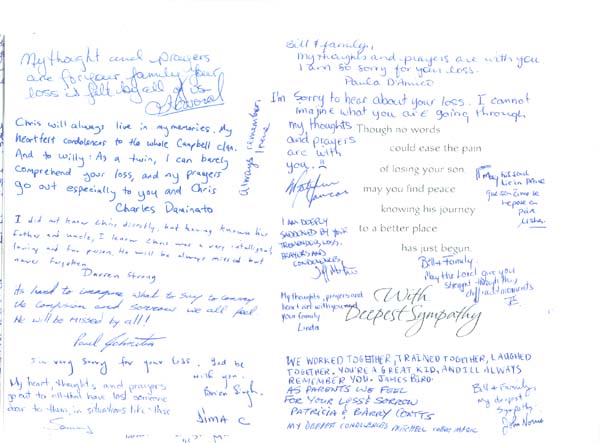 My thought and prayers
are for your family. Your
loss is felt by all of us
Chris will always live in my memories. My
heartfelt condolences to the whole Campbell clan.
And to Willy: As a twin, I can barely
comprehend your loss, and my prayers
go out especially to you and Chris
Charles Daminato
Always remember.
Irene
I did not know Chris directly, but having known his
father and uncle, I know Chris was a very intelligent,
loving and fun person. He will be always missed but
never forgotten
Darren Strong
It's hard to imagine what to say to convey
the compassion and sorrow we all feel
He will be missed by all!
Paul Johnston
I'm very sorry for your loss. God be
with you.
Singh
My heart, thoughts, and prayers
go out to all that have lost someone
dear to them, in situations like these
Sammy
NIMA C
Bill & family,
My thoughts and prayers are with you
I am so sorry for your loss.
Paula D'Amico
I'm sorry to hear about your loss. I cannot
imagine what you are going through
my thoughts
and prayers
are with
you.
Though no words
could ease the pain
of losing your son,
may you find peace
knowing his journey
to a better place
has just begun.
With
Deepest Sympathy
May his soul
I AM DEEPLY
SADDENED BY YOUR
TREMENDOUS LOSS.
PRAYERS AND
CONDOLENCES,
Bill & Family
May the Lord give you
strength through this
difficult moments
My thoughts, prayers and
heart are with you and
your family
Linda
WE WORKED TOGETHER, TRAINED TOGETHER, LAUGHED
TOGETHER. YOU'RE A GREAT KID, AND I'LL ALWAYS
REMEMBER YOU. JAMES BIRD
AS PARENTS WE FEEL
FOR YOUR LOSS & SORROW
PATRICIA & BARRY COATTS
MY DEEPEST CONDOLENCES MITCHELL
Bill & Family
my deepest
sympathy
John